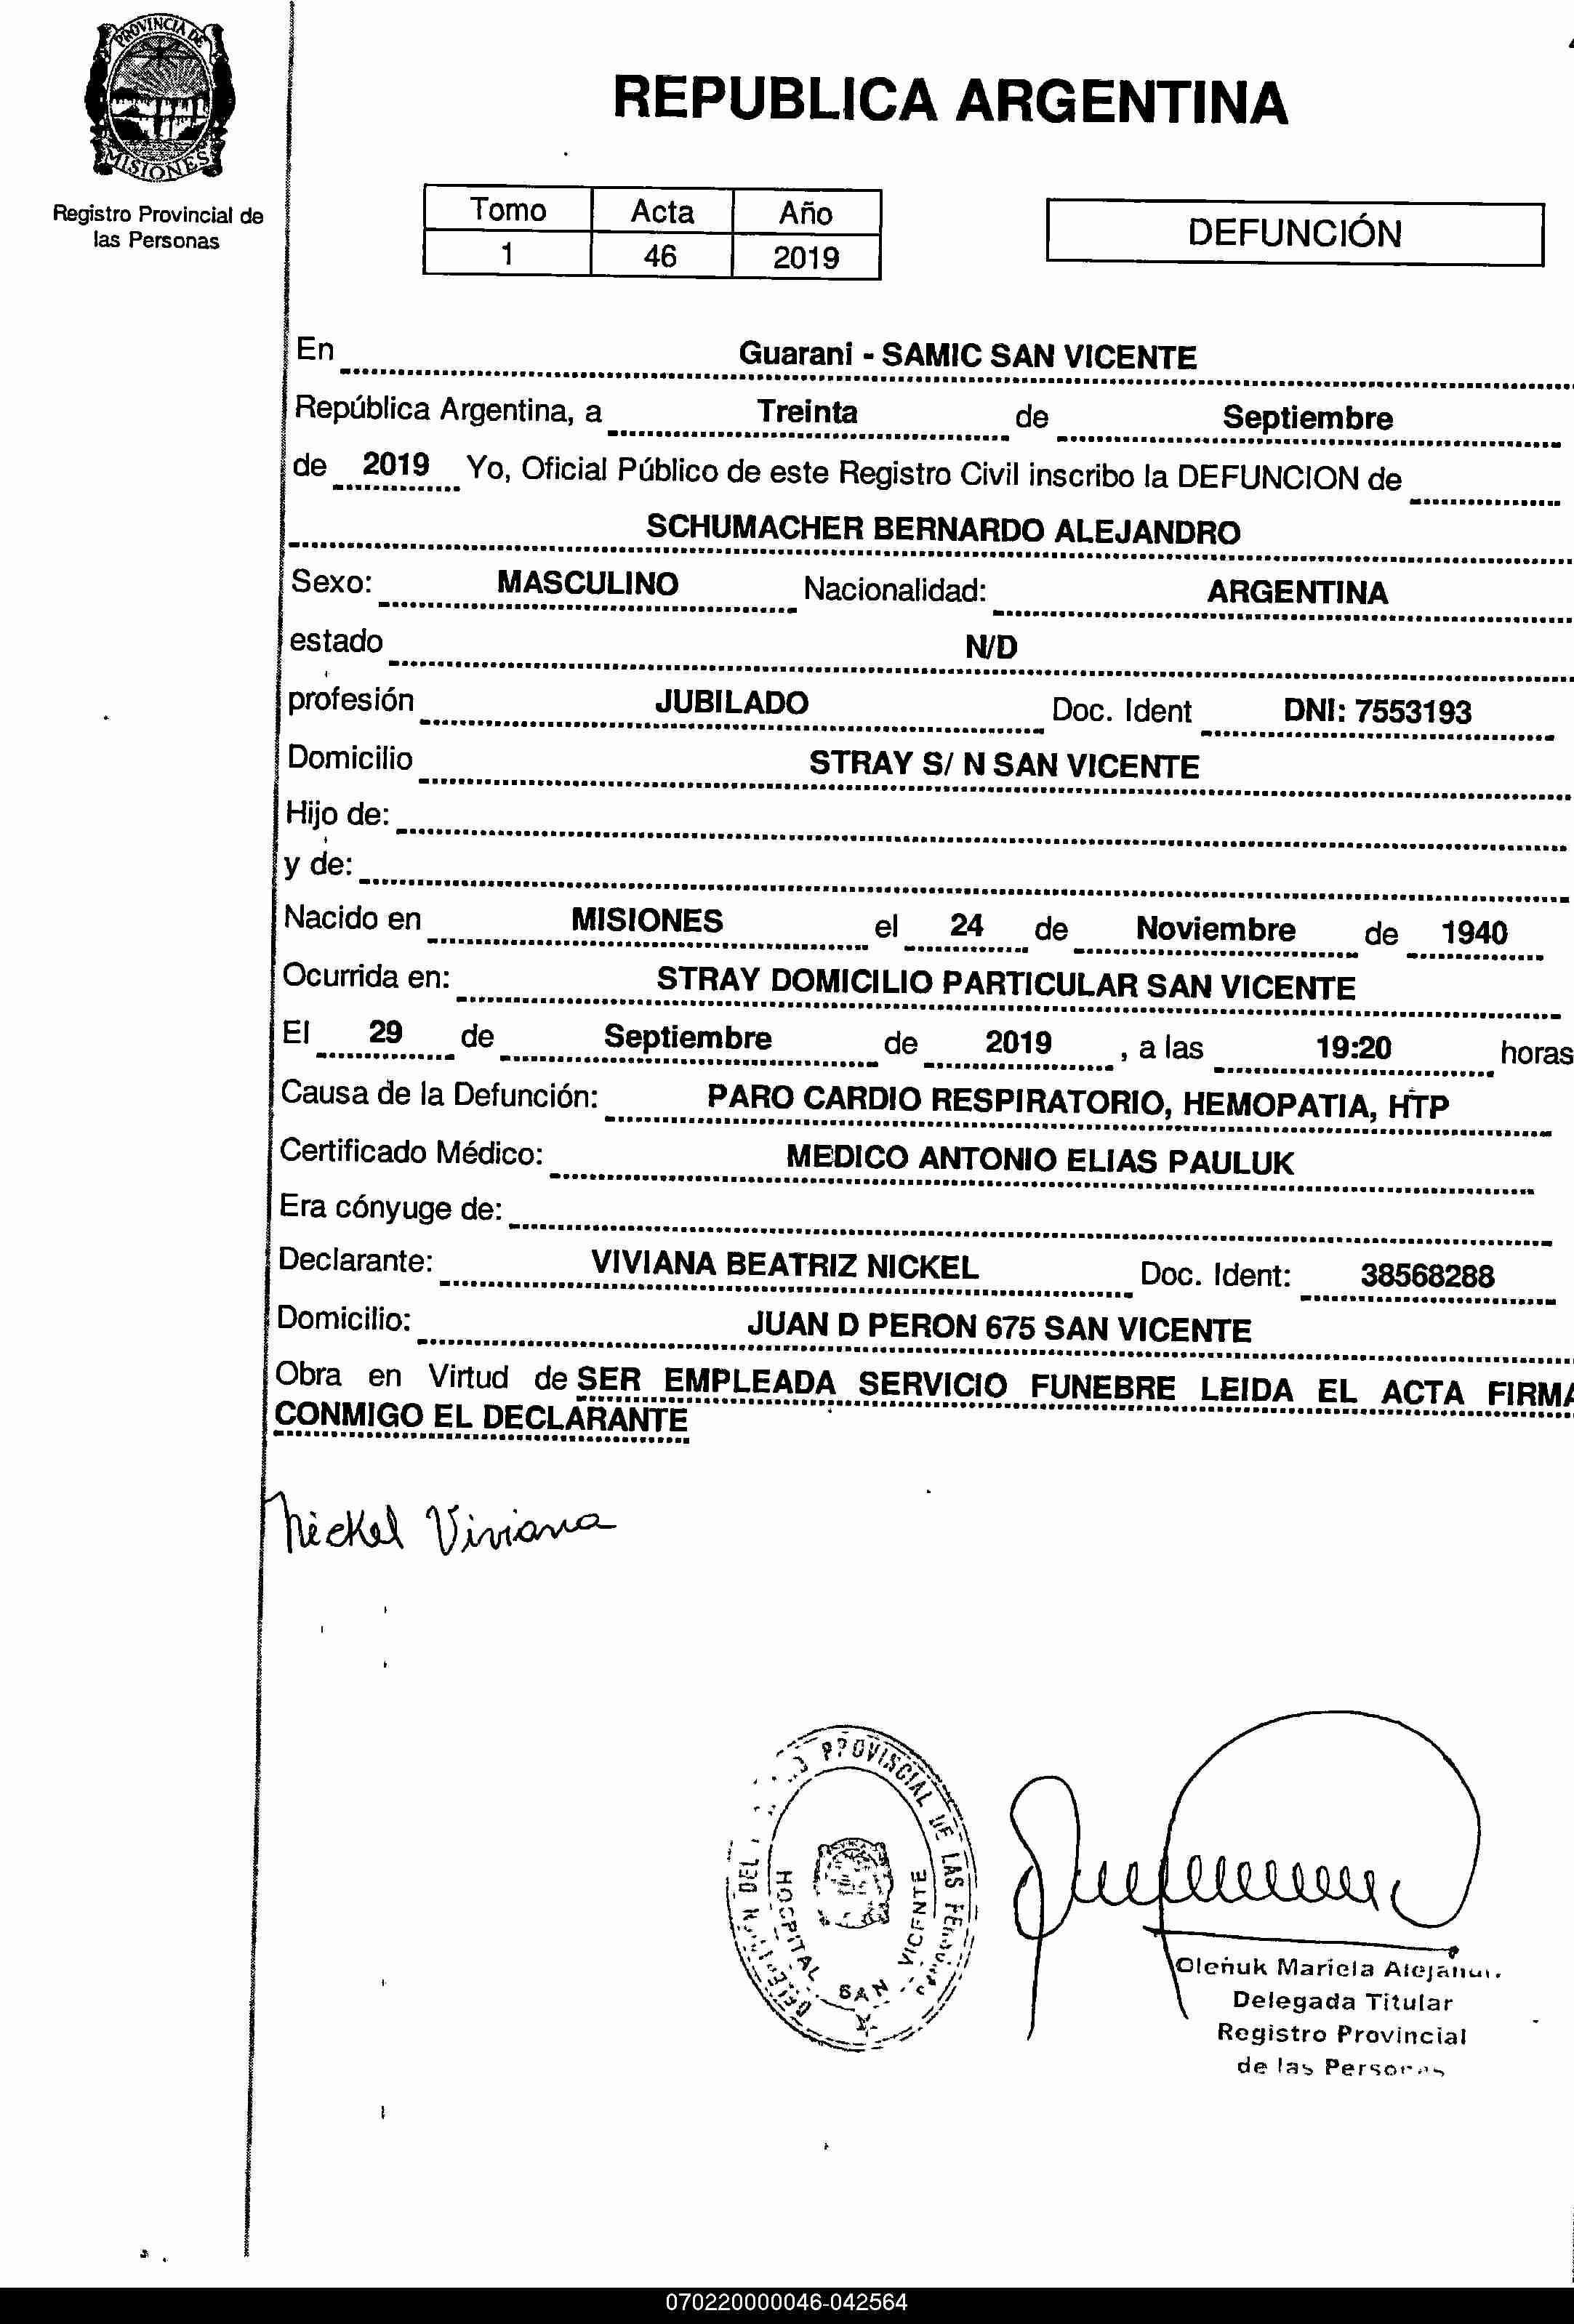 PROVINCIA DE
MISIONES
Registro Provincial de
las Personas
REPUBLICA ARGENTINA
Tomo Acta Año
1 46 2019
DEFUNCIÓN
En Guarani - SAMIC SAN VICENTE
República Argentina, a Treinta de Septiembre
de 2019 Yo, Oficial Público de este Registro Civil inscribo la DEFUNCION de
SCHUMACHER BERNARDO ALEJANDRO
Sexo: MASCULINO Nacionalidad: ARGENTINA
estado N/D
profesión JUBILADO Doc. Ident DNI: 7553193
Domicilio STRAY S/ N SAN VICENTE
Hijo de:
y de:
Nacido en MISIONES el 24 de Noviembre de 1940
Ocurrida en: STRAY DOMICILIO PARTICULAR SAN VICENTE
El 29 de Septiembre de 2019 , a las 19:20 horas
Causa de la Defunción: PARO CARDIO RESPIRATORIO, HEMOPATIA, HTP
Certificado Médico: MEDICO ANTONIO ELIAS PAULUK
Era cónyuge de:
Declarante: VIVIANA BEATRIZ NICKEL Doc. Ident: 38568288
Domicilio: JUAN D PERON 675 SAN VICENTE
Obra en Virtud de SER EMPLEADA SERVICIO FUNEBRE LEIDA EL ACTA FIRMA
CONMIGO EL DECLARANTE
Nickel Viviana
PROVINCIAL DE LAS
HOSPITAL SAN VICENTE
Oleñuk Mariela
Delegada Titular
Registro Provincial
de las Personas
070220000046-042564